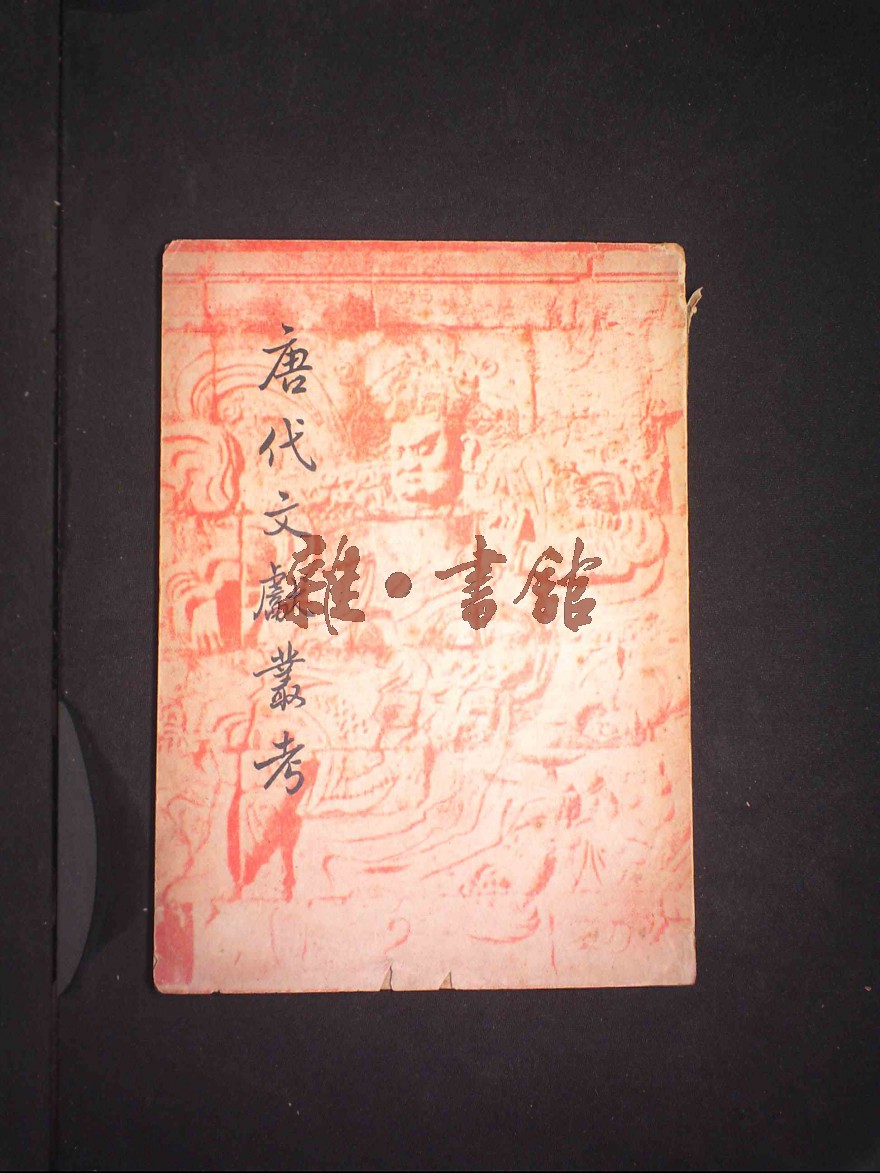 唐代文獻叢考
雜·書館